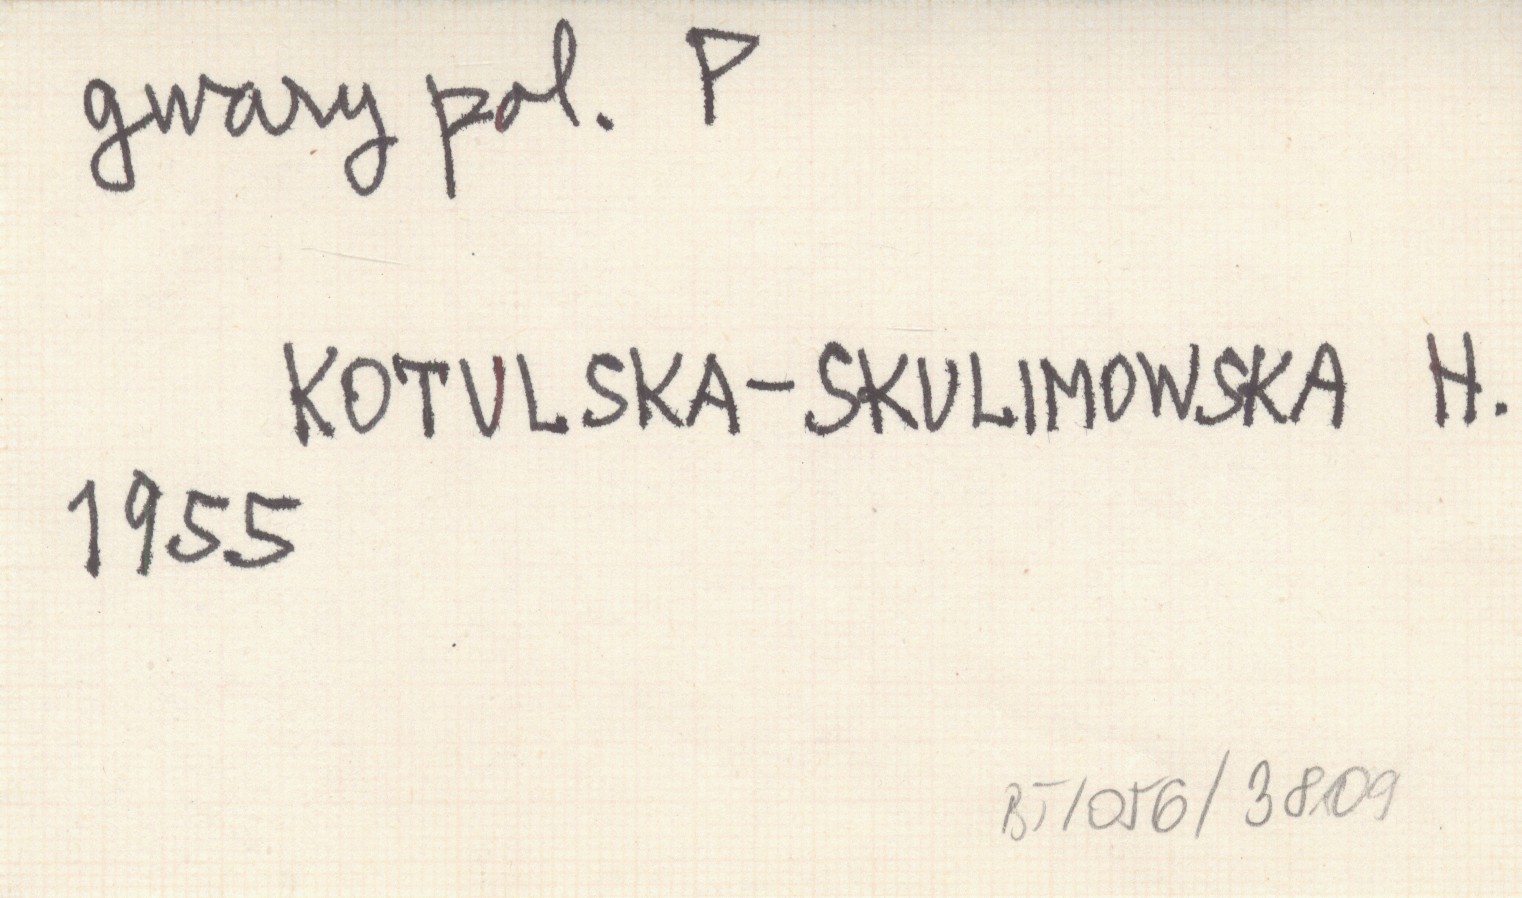 gwary pol. P
KOTULSKA-SKULIMOWSKA H.
1955
BJ/056/3809